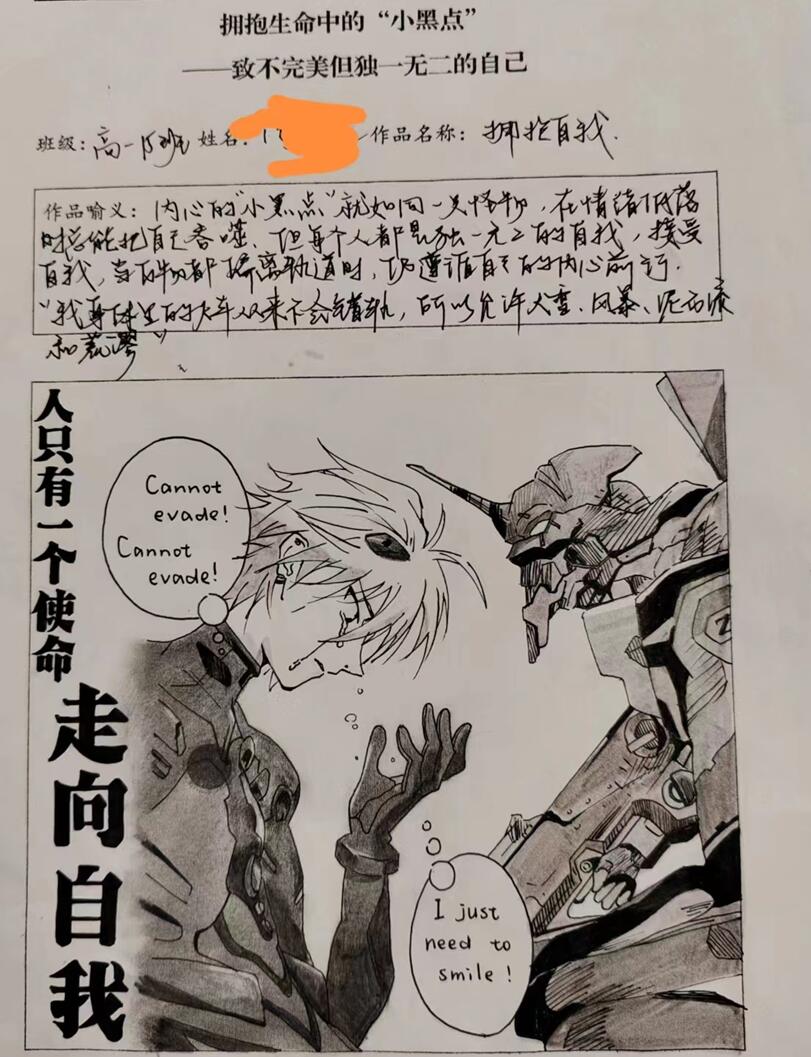 拥抱生命中的“小黑点”
——致不完美但独一无二的自己
班级：高一15班 姓名： 作品名称：拥抱自我.
作品喻义：内心的“小黑点”就如同一只怪物，在情绪低落
时总能把自己吞噬、但每个人都是独一无二的自我，接受
自我，当万物都偏离轨道时，仍遵循自己的内心前行.
“我身体里的火车从来不会错轨，所以允许大雪、风暴、泥石流
和荒谬”
人只有一个使命
走向自我
Cannot
evade!
Cannot
evade!
I just
need to
smile!